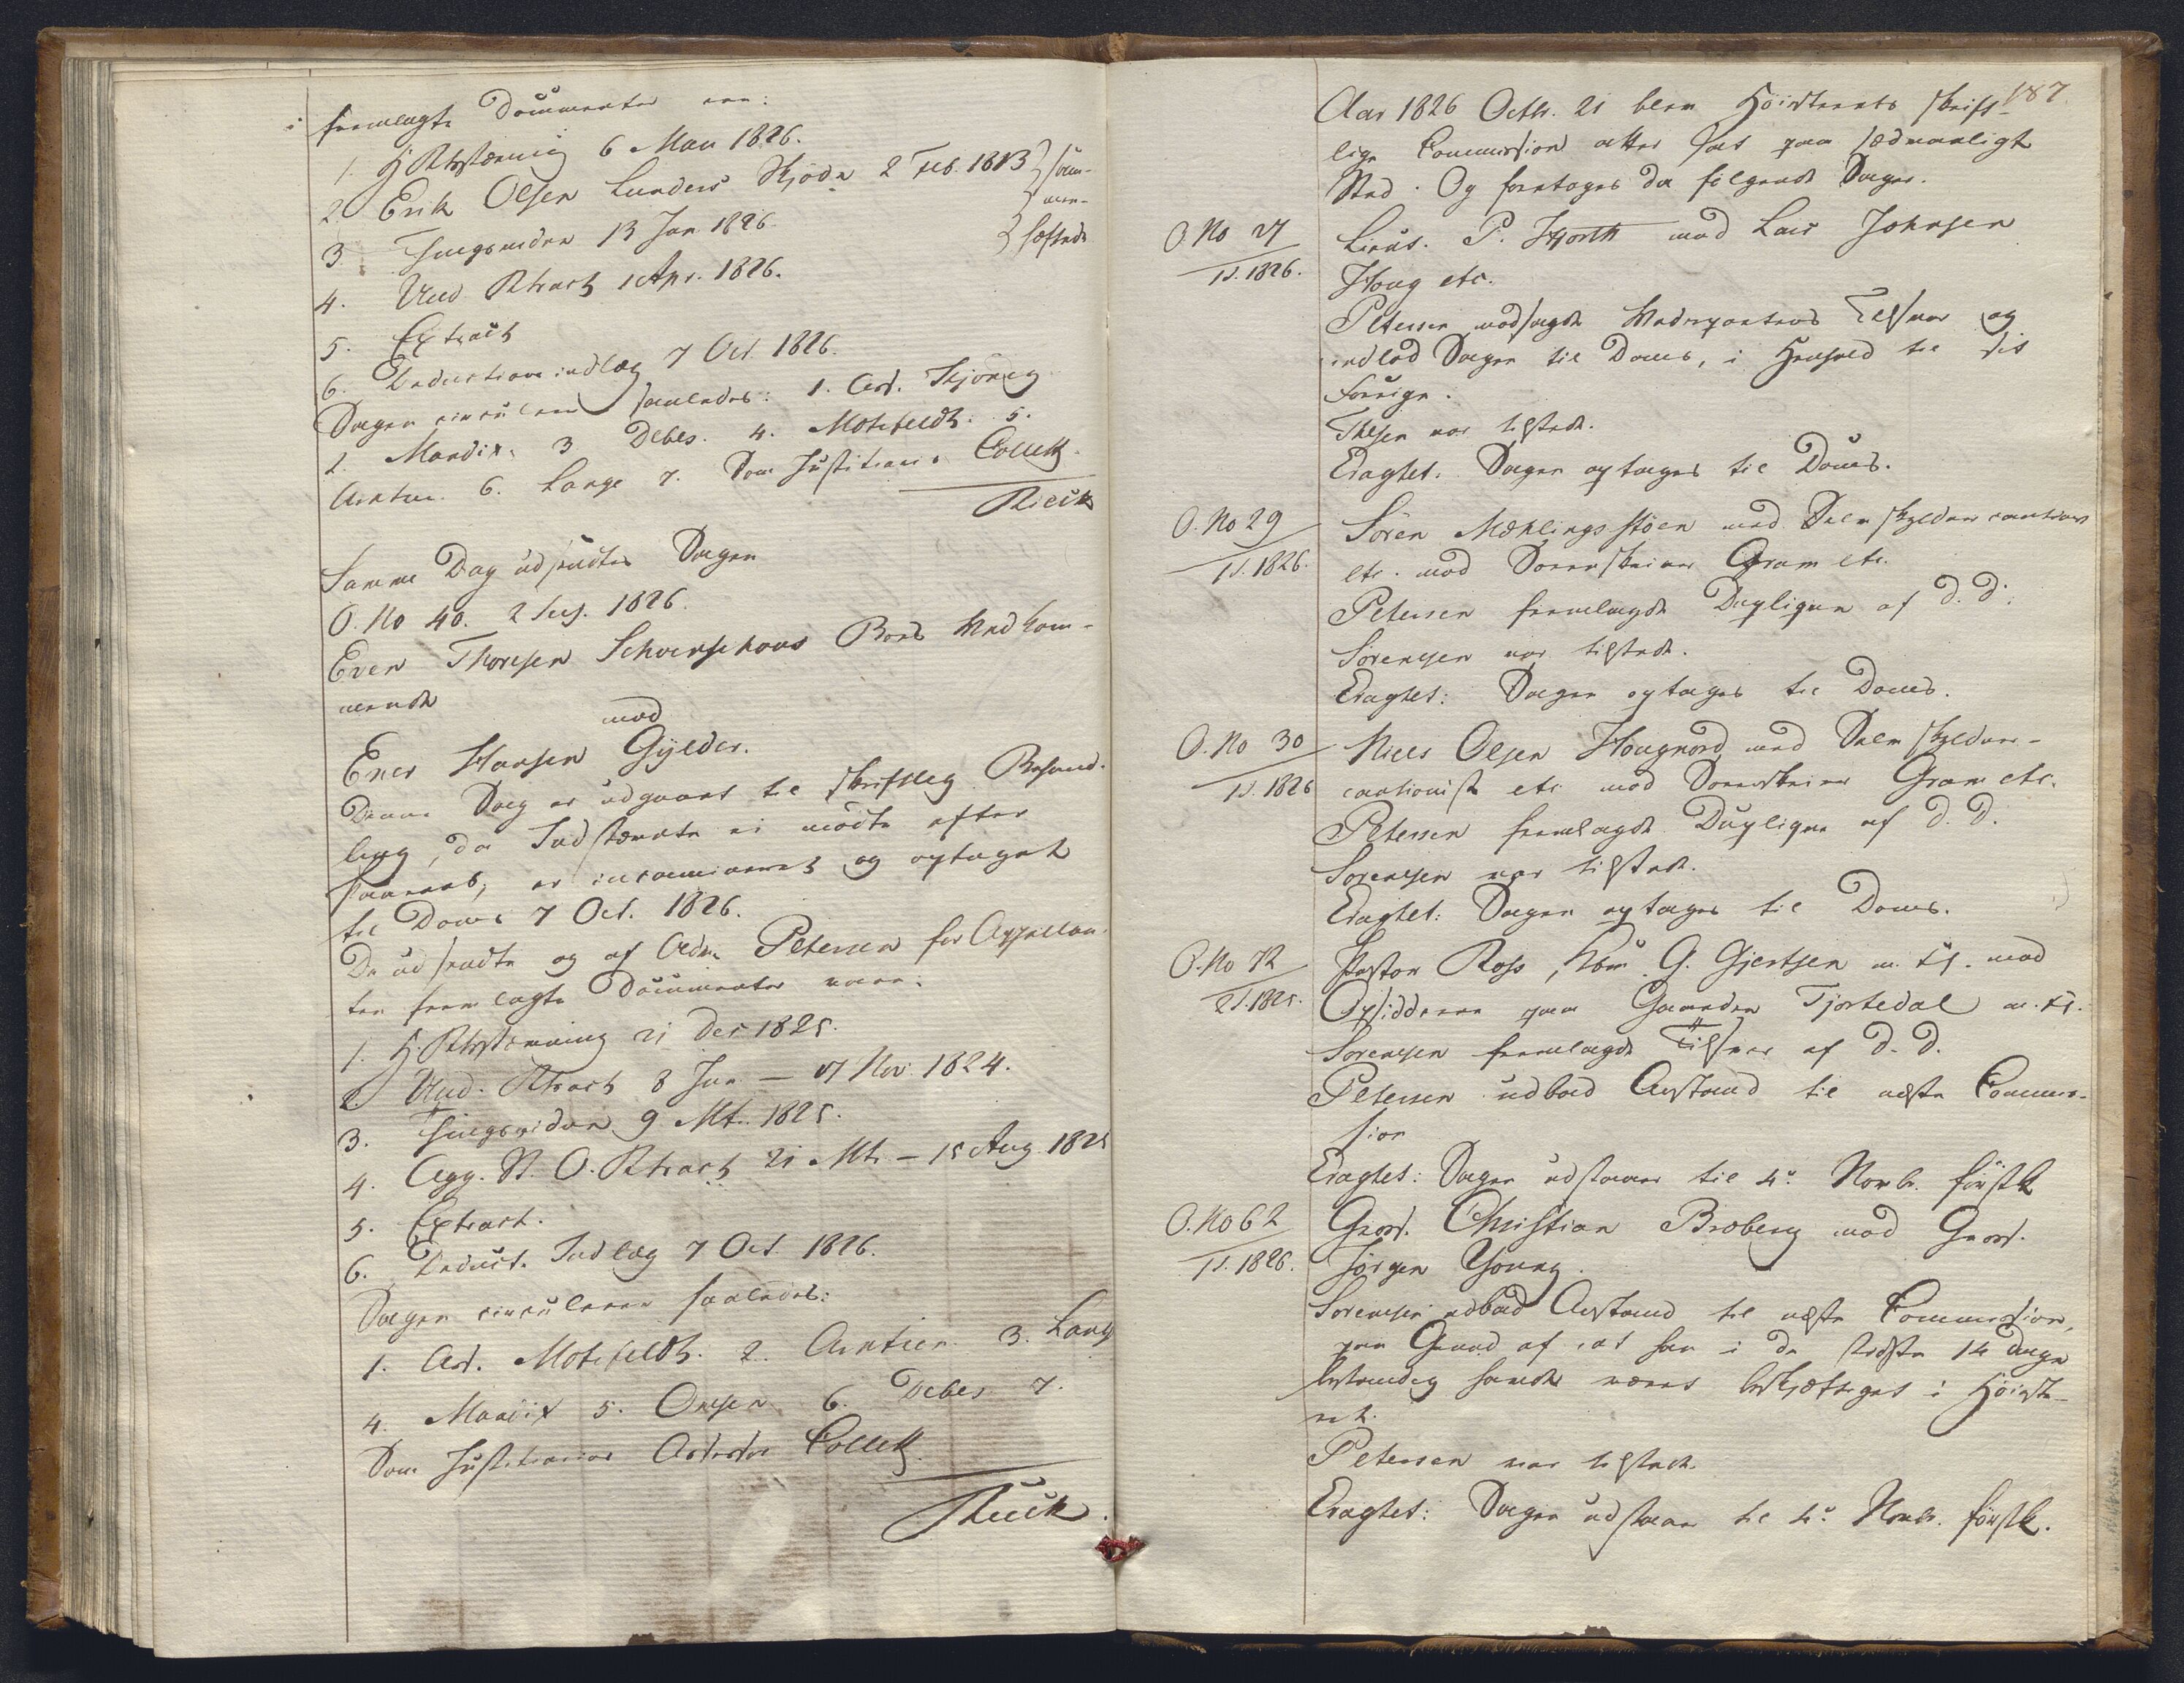 fremlagte Documenter ere:
1. H Rtsstævning 6 Mai 1826.
2 Erik Olsen Lunders Skjöde 2 Feb. 1813 } sam-
} men-
3. Tingsviden 13 Jan 1826. } hæftede
4. Und Rtsact 1 Apr. 1826.
5. Extract
6. Deductions indlæg 7 Oct. 1826.
Sagen circulerer saaledes: 1. Ass. Skjönberg
2. Mandix. 3 Debes. 4. Motzfeldt. 5.
Arntzen. 6. Lange 7. Som Justitiarius Collett.
Rieck
Samme Dag udsendtes Sagen
O. No 40. 2 Ses. 1826.
Even Thoresen Schoienshous Boes Vedkom-
mende
mod
Ener Hansen Gylder.
Denne Sag er udgaaet til skriftlig Behand-
ling, da Indstævnte ei mödte efter
paaraab, er incamineret og optaget
til Doms 7 Oct. 1826.
De udsendte og af Adv. Petersen for Appellan-
ten fremlagte Documenter vare.
1. H. Rtsstævning 21 Dec 1825.
2. Und. Rtsact 8 Jan - 17 Nov. 1824.
3. Tingsviden 9 Mt. 1825.
4. Agg. St. O. Rtsact 21 Mt. - 15 Aug. 1825
5. Extract.
6. Deduct. Indlæg 7 Oct 1826.
Sagen circulerer saaledes:
1. Ass. Motzfeldt. 2. Arntzen 3. Lange
4. Mandix 5. Omsen 6. Debes 7.
Som Justitiarius Assessor Collett.
Rieck.
187.
Aar 1826 Octbr. 21 blev Höiesterets skrift-
lige Commission atter sat paa sædvanligt
Sted. Og foretoges da fölgende Sager.
O. No 27
1 S. 1826.
Lieut. P. Hjorth mod Lars Johnsen
Houg etc.
Petersen modsagde Modpartens Tilsvar og
indlod Sagen til Doms, i Henhold til sit
Forrige.
Thesen var tilstede.
Eragtet. Sagen optages til Doms.
O. No 29
1 S. 1826.
Sören Mæhlingsstöen med Selvskyldner cautionist
etc. mod Sorenskriver Gram etc.
Petersen fremlagde Duplique af D. D.
Sörensen var tilstede.
Eragtet: Sagen optages til Doms.
O. No 30
1 S. 1826
Niels Olsen Hougnord med Selvskyldner-
cautionist etc mod Sorenskriver Gram etc.
Petersen fremlagde Duplique af D. D.
Sörensen var tilstede.
Eragtet: Sagen optages til Doms.
O. No 72
2 S. 1825.
Pastor Ross, G. Gjertsen m. fl. mod
Opsidderne paa Gaarden Tjortedal m. fl.
Sörensen fremlagde Tilsvar af D. D.
Petersen udbad Anstand til næste Commis-
sion
Eragtet: Sagen udstaaer til 4de Novbr. förstk.
O. No 62
1 S. 1826.
Gross. Christian Broberg mod Gross.
Jörgen Young.
Sörensen udbad Anstand til næste Commission,
paa Grund af, at han i de sidste 14 Dage
bestandig havde været beskjæftiget i Höieste-
ret.
Petersen var tilstede.
Eragtet: Sagen udstaaer til 4de Novbr. förstk.